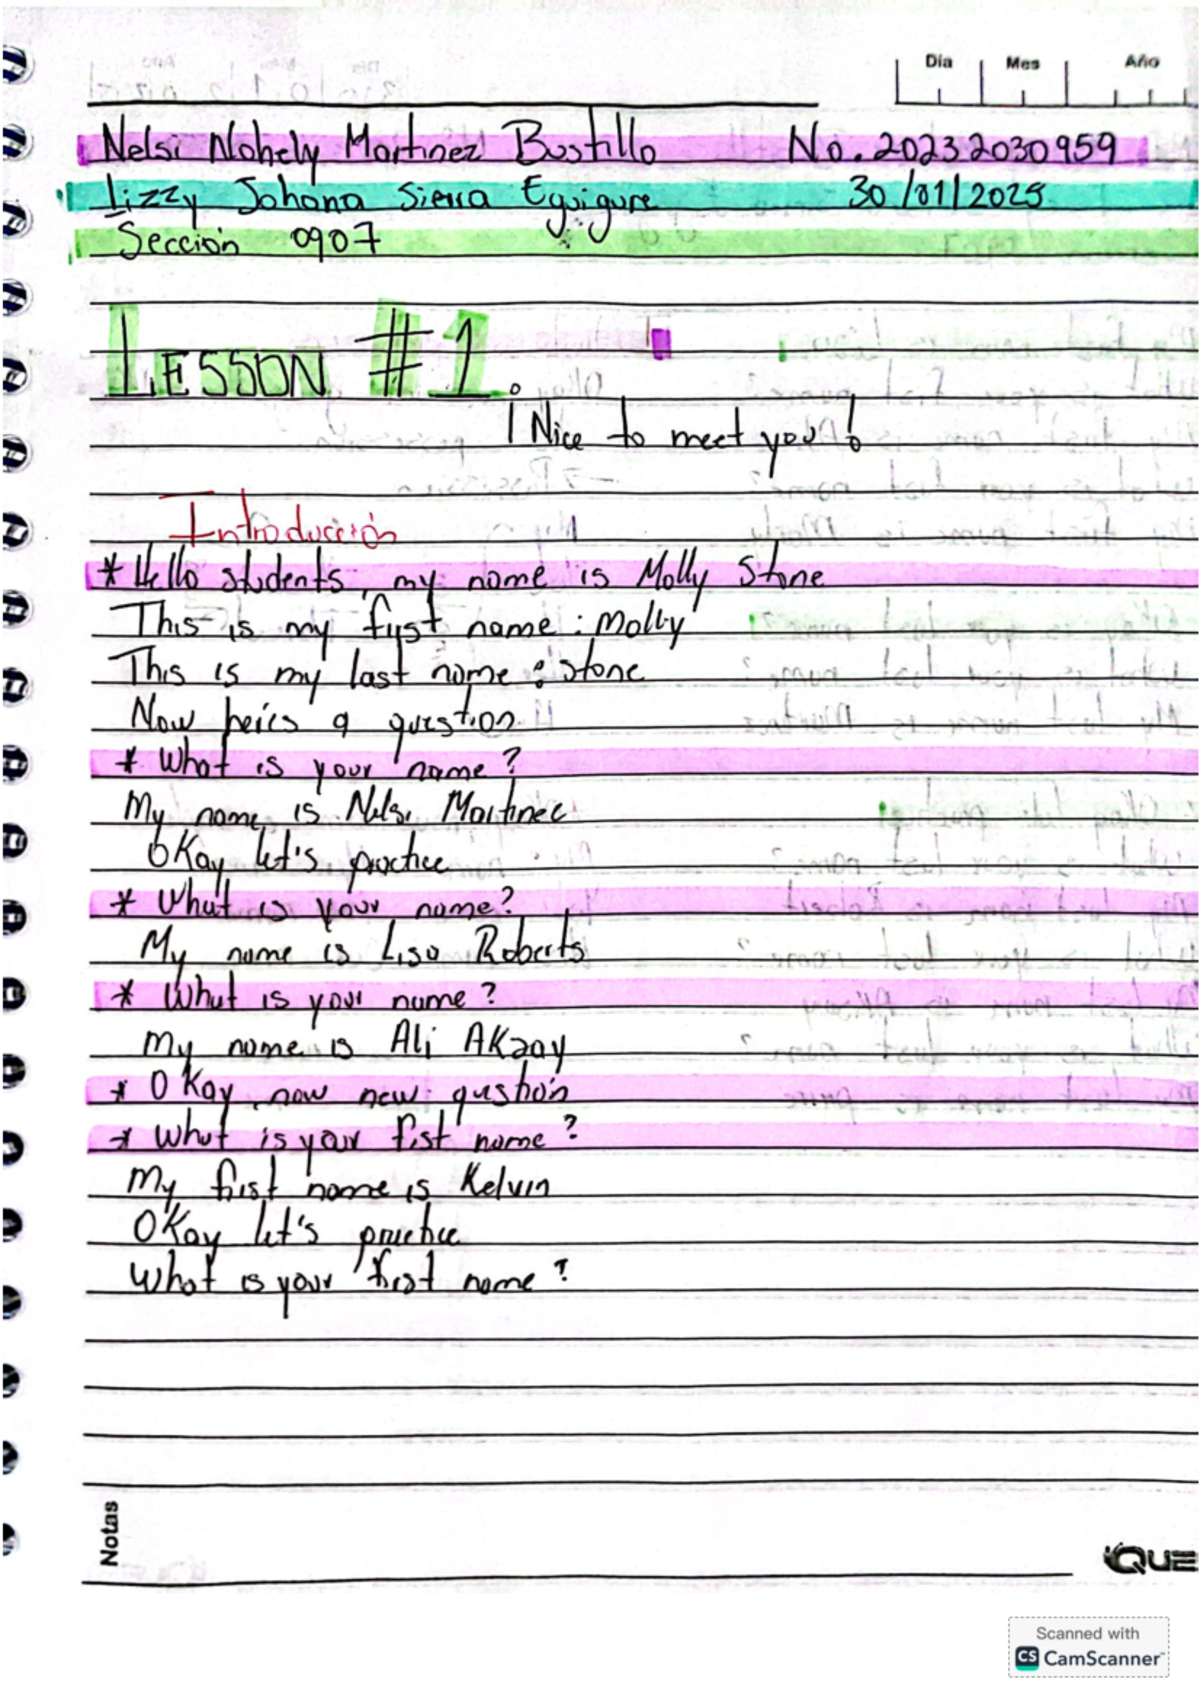 Día Mes Año
Nelsi Nohely Martinez Bustillo No. 20232030959
Lizzy Johana Sierra Eguigure 30/01/2025
Sección 0907
LESSON #1.
¡Nice to meet you!
Introducción
* Hello students, my name is Molly Stone
This is my first name: Molly
This is my last name: Stone
Now heris a question
* What is your name?
My name is Nelsi Martinec
OKay let's practice
* What is your name?
My name is Lisa Roberts
* What is your name?
My name is Ali AKzay
* OKay, now new question
* What is your fist name?
My first name is Kelvin
OKay let's practice
What is your first name?
Notas
iQUE
Scanned with
CS CamScanner